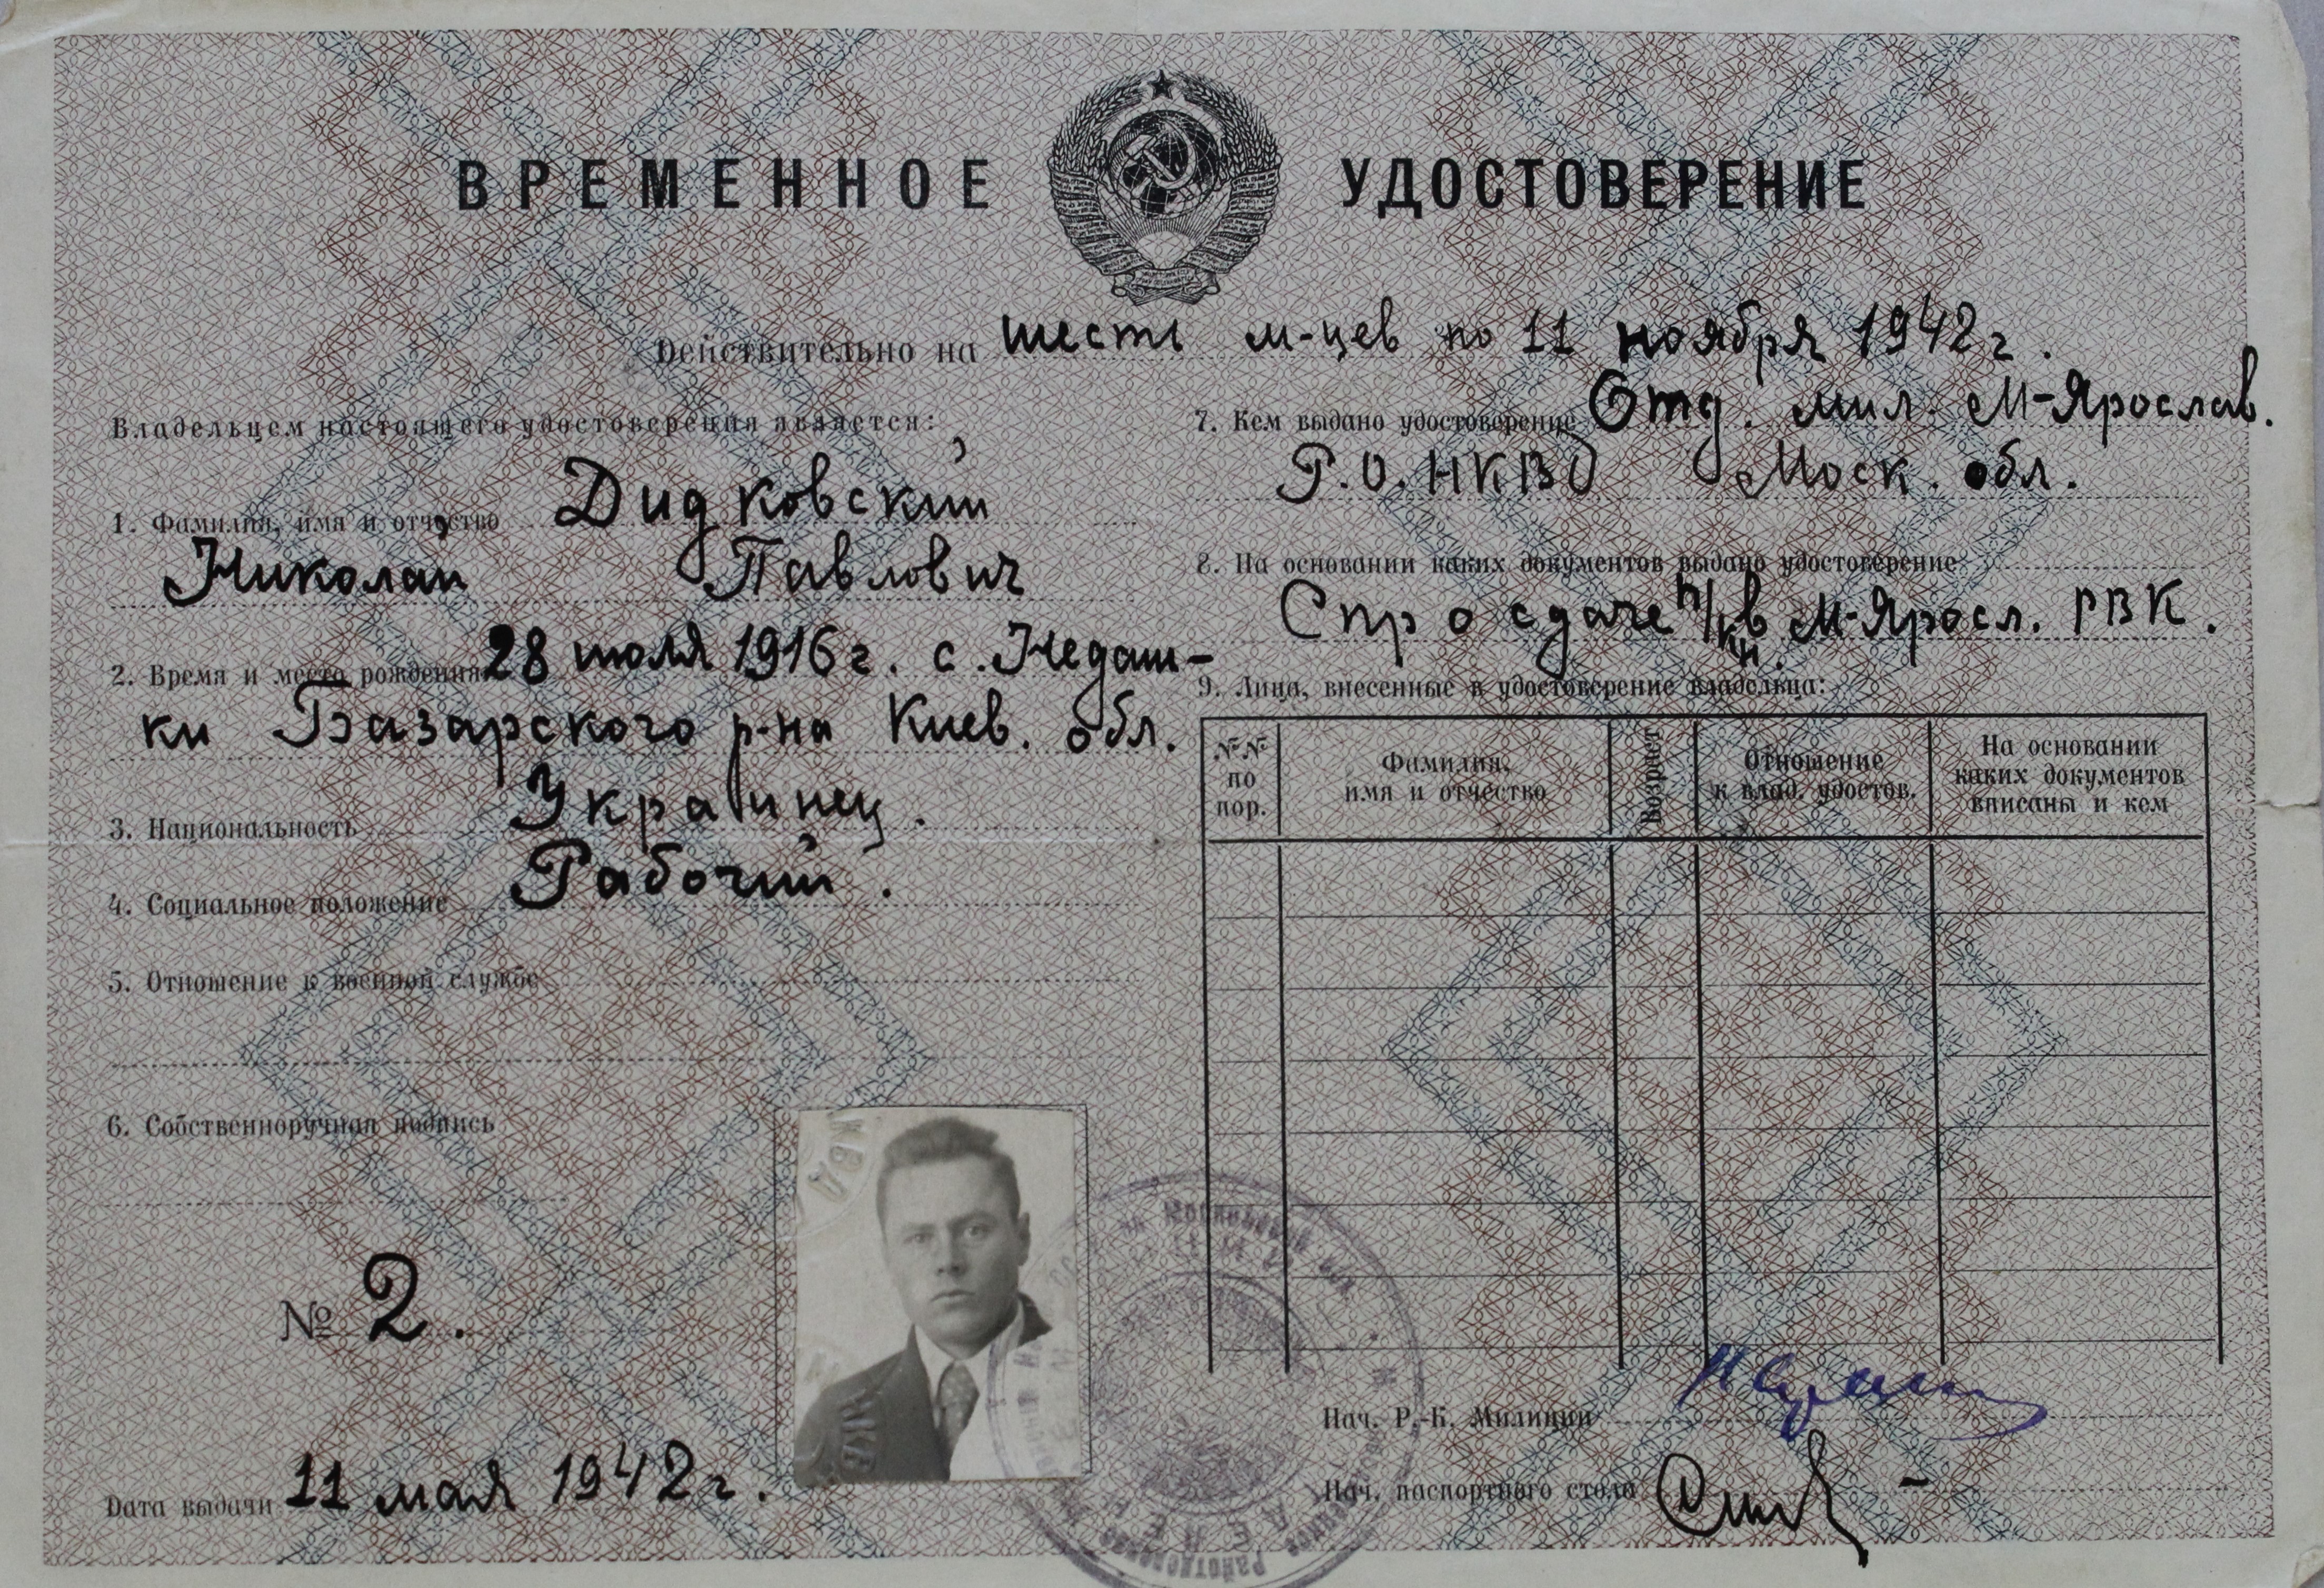 ВРЕМЕННОЕ УДОСТОВЕРЕНИЕ
Действительно на шесть м-цев по 11 ноября 1942 г.
Владельцем настоящего удостоверения является:
1. Фамилия, имя и отчество Дидковский
Николай Павлович
2. Время и место рождения 28 июля 1916 г. с. Недаш-
ки Базарского р-на Киев. обл.
3. Национальность Украинец.
4. Социальное положение Рабочий.
5. Отношение к военной службе
6. Собственноручная подпись
№ 2.
Дата выдачи 11 мая 1942 г.
7. Кем выдано удостоверение Отд. мил. М-Ярослав.
Р.О. НКВД Моск. обл.
8. На основании каких документов выдано удостоверение
Спр о сдаче в М-Яросл. РВК.
9. Лица, внесенные в удостоверение владельца:
№№ по пор.
Фамилия, имя и отчество
Возраст
Отношение к влад. удостов.
На основании каких документов вписаны и кем
Нач. Р.-К. Милиции
Нач. паспортного стола